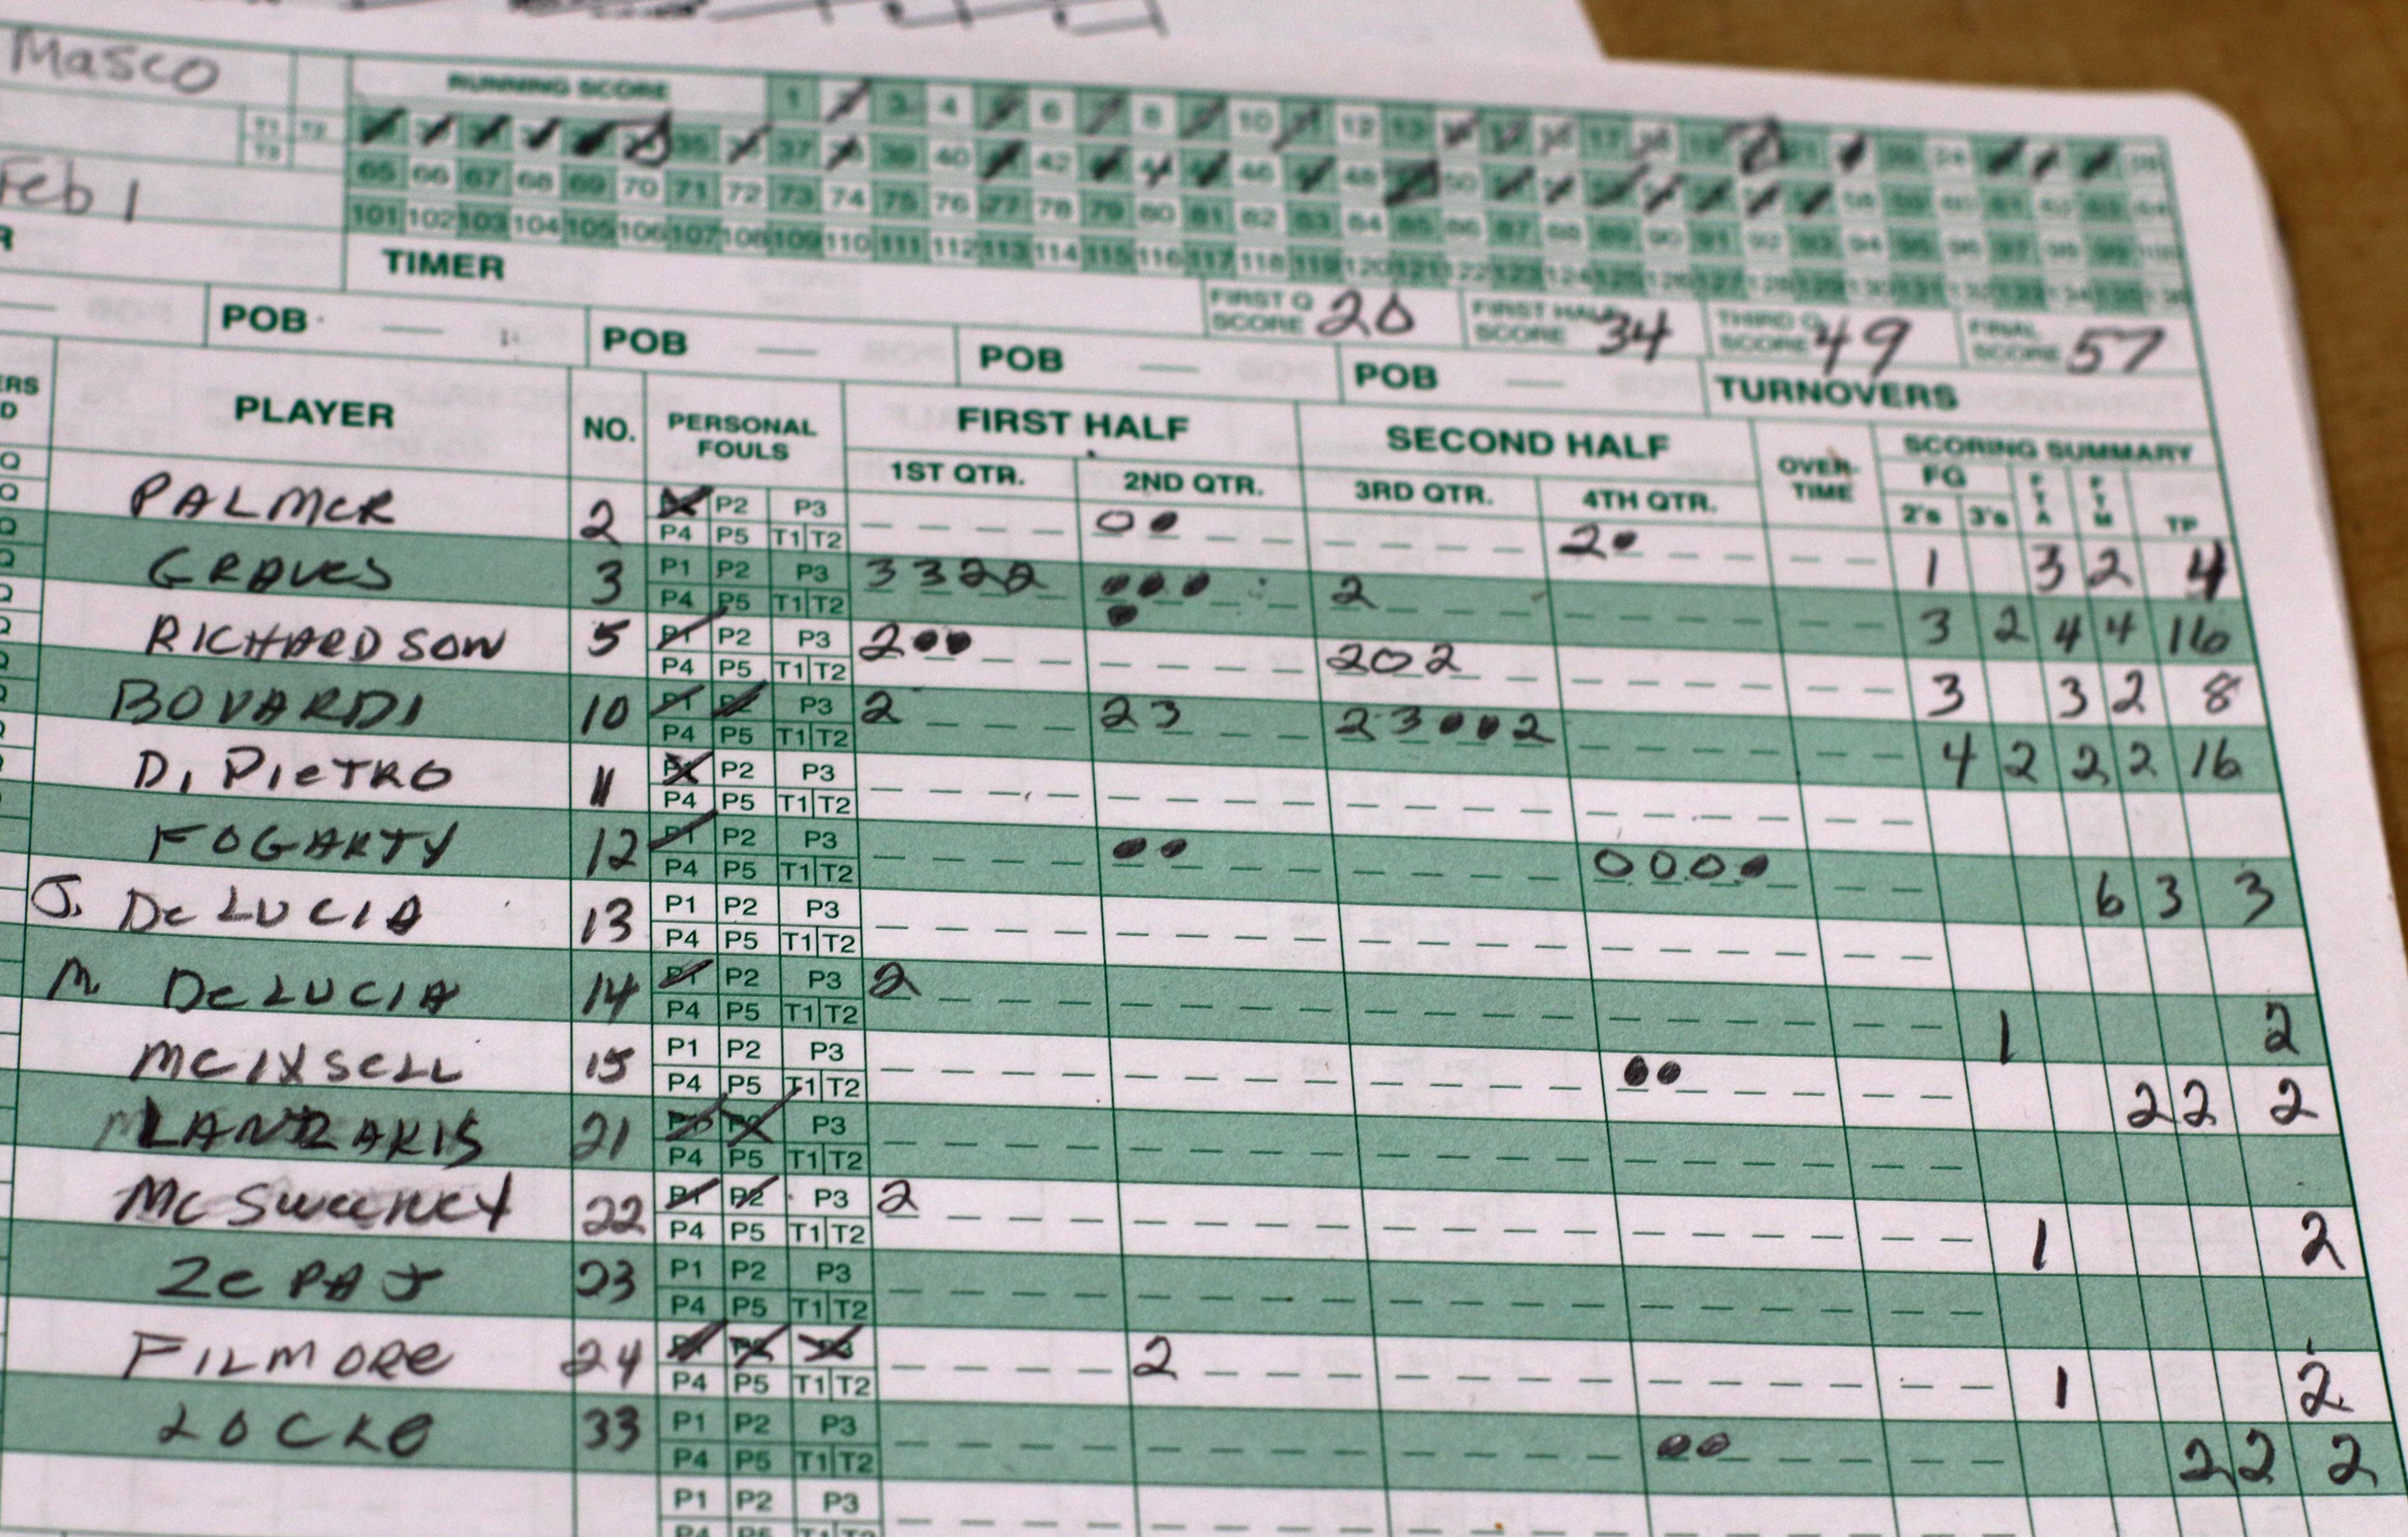 Masco
RUNNING SCORE 1 3 4 6 8 10 12 13 17
T1 T2
T3
35 37 39 40 42 46 48 50
Feb 1
65 66 67 68 69 70 71 72 73 74 75 76 77 78 79 80 81 82 83 84 85 86 87 88 89 90 91 92 93 94 95 96 97 98 99 100
101 102 103 104 105 106 107 108 109 110 111 112 113 114 115 116 117 118 119 120 121 122 123 124 125 126 127 128 129 130 131 132 133 134 135 136
R TIMER
FIRST Q SCORE 20 FIRST HALF SCORE 34 THIRD Q SCORE 49 FINAL SCORE 57
POB POB POB POB TURNOVERS
ERS
D
PLAYER NO. PERSONAL FOULS FIRST HALF SECOND HALF OVER-TIME SCORING SUMMARY
1ST QTR. 2ND QTR. 3RD QTR. 4TH QTR. FG 2's 3's FTA FTM TP
Q PALMER 2 P2 P3 0● 2● 1 3 2 4
P4 P5 T1 T2
GRAVES 3 P1 P2 P3 3 3 2 2 ●●● 2 3 2 4 4 16
P4 P5 T1 T2 ●
RICHARDSON 5 P1 P2 P3 2●● 202 3 3 2 8
P4 P5 T1 T2
BOVARDI 10 P1 P2 P3 2 23 23●●2 4 2 2 2 16
P4 P5 T1 T2
Di PIETRO 11 P1 P2 P3
P4 P5 T1 T2
FOGARTY 12 P1 P2 P3 ●● 000● 6 3 3
P4 P5 T1 T2
J. DeLUCIA 13 P1 P2 P3
P4 P5 T1 T2
M. DeLUCIA 14 P1 P2 P3 2 1 2
P4 P5 T1 T2
15 P1 P2 P3 ●● 2 2 2
P4 P5 T1 T2
21 P3
P4 P5 T1 T2
McSWEENEY 22 P1 P2 P3 2 1 2
P4 P5 T1 T2
ZEPAJ 23 P1 P2 P3
P4 P5 T1 T2
FILMORE 24 2 1 2
P4 P5 T1 T2
LOCKE 33 P1 P2 P3 ●● 2 2 2
P4 P5 T1 T2
P1 P2 P3
P4 P5 T1 T2